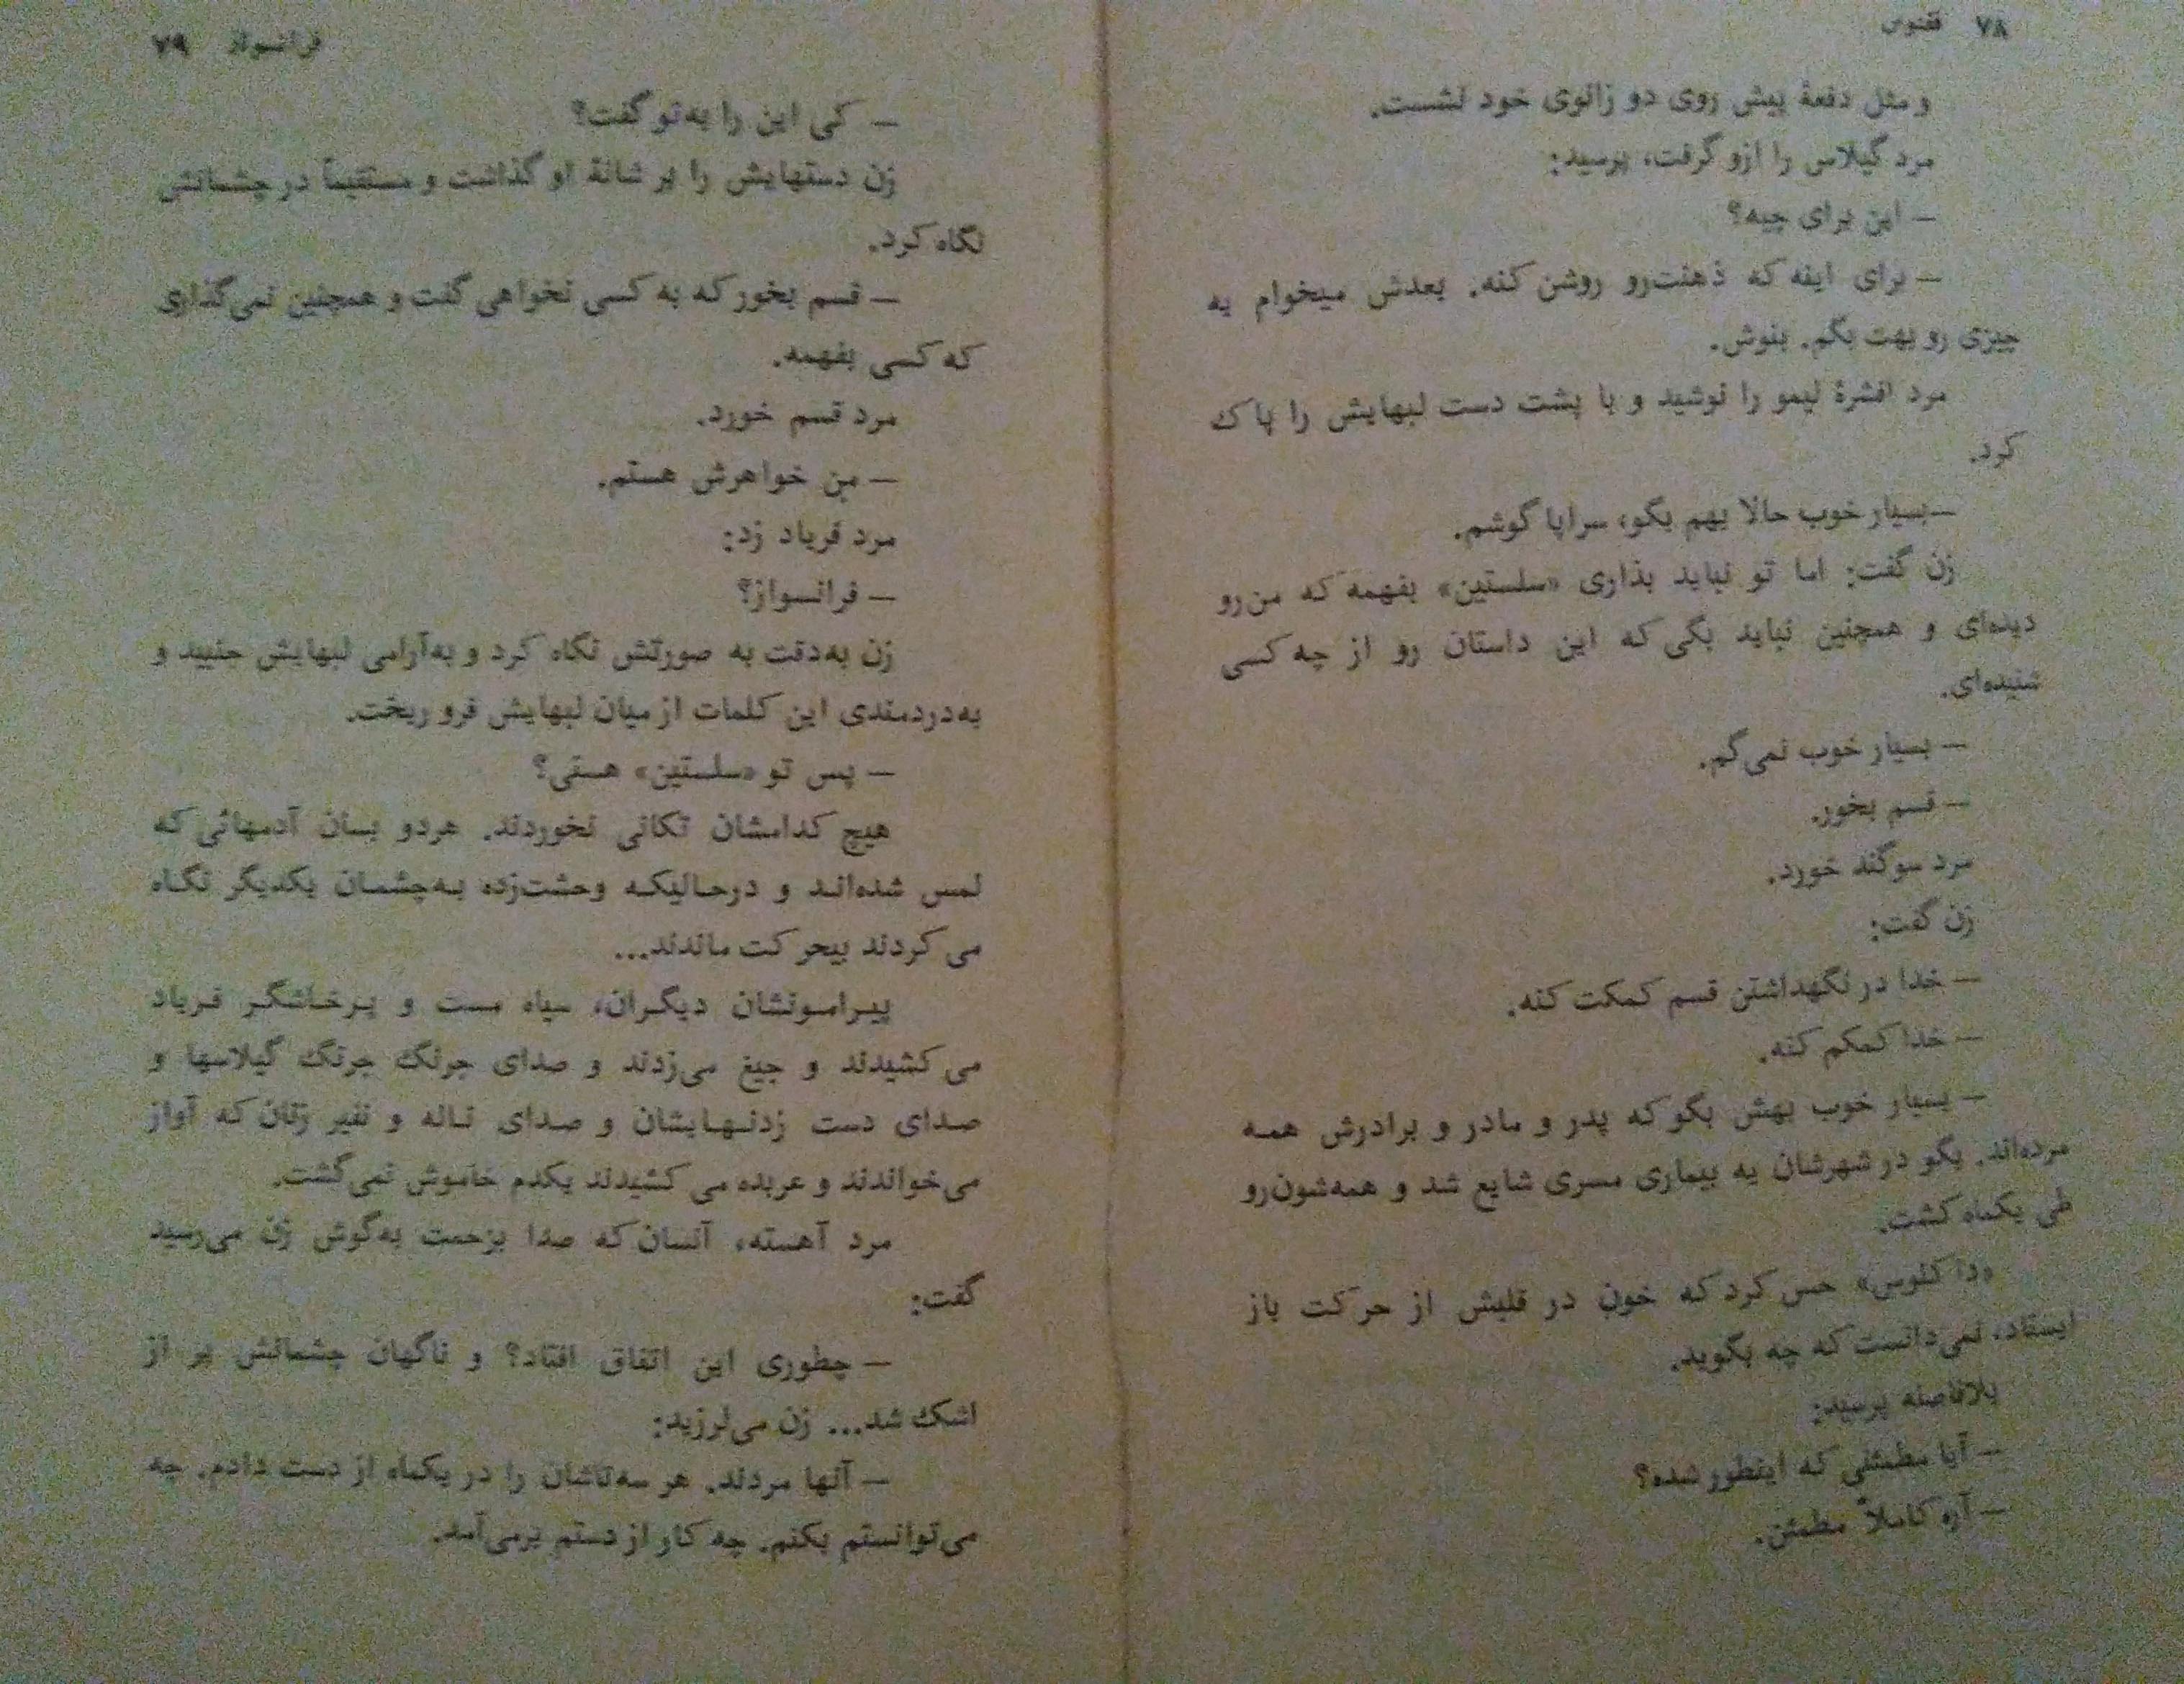 ۷۸ ققنوس
و مثل دفعهٔ پیش روی دو زانوی خود نشست.
مرد گیلاس را ازو گرفت، پرسید:
– این برای چیه؟
– برای اینه که ذهنت‌رو روشن کنه. بعدش میخوام یه
چیزی رو بهت بگم. بنوش.
مرد افشرهٔ لیمو را نوشید و با پشت دست لبهایش را پاک
کرد.
– بسیار خوب حالا بهم بگو، سراپا گوشم.
زن گفت: اما تو نباید بذاری «سلستین» بفهمه که من‌رو
دیده‌ای و همچنین نباید بگی که این داستان رو از چه کسی
شنیده‌ای.
– بسیار خوب نمی‌گم.
– قسم بخور.
مرد سوگند خورد.
زن گفت:
– خدا در نگهداشتن قسم کمکت کنه.
– خدا کمکم کنه.
– بسیار خوب بهش بگو که پدر و مادر و برادرش همه
مرده‌اند. بگو در شهرشان یه بیماری مسری شایع شد و همه‌شون‌رو
طی یکماه کشت.
«دا کلوس» حس کرد که خون در قلبش از حرکت باز
ایستاد، نمی‌دانست که چه بگوید.
بلافاصله پرسید:
– آیا مطمئنی که اینطور شده؟
– آره کاملاً مطمئن.
فرانسواز ۷۹
– کی این را به‌تو گفت؟
زن دستهایش را بر شانهٔ او گذاشت و مستقیماً در چشمانش
نگاه کرد.
– قسم بخور که به کسی نخواهی گفت و همچنین نمی‌گذاری
که کسی بفهمه.
مرد قسم خورد.
– من خواهرش هستم.
مرد فریاد زد:
– فرانسواز؟
زن به‌دقت به صورتش نگاه کرد و به‌آرامی لبهایش جنبید و
به‌دردمندی این کلمات از میان لبهایش فرو ریخت.
– پس تو «سلستین» هستی؟
هیچ کدامشان تکانی نخوردند. هردو بسان آدمهائی که
لمس شده‌اند و درحالیکه وحشت‌زده به‌چشمان یکدیگر نگاه
می‌کردند بیحرکت ماندند...
پیرامونشان دیگران، سیاه مست و پرخاشگر فریاد
می‌کشیدند و جیغ می‌زدند و صدای جرنگ جرنگ گیلاسها و
صدای دست زدنهایشان و صدای ناله و نفیر زنان که آواز
می‌خواندند و عربده می‌کشیدند یکدم خاموش نمی‌گشت.
مرد آهسته، آنسان که صدا بزحمت به‌گوش زن می‌رسید
گفت:
– چطوری این اتفاق افتاد؟ و ناگهان چشمانش پر از
اشک شد... زن می‌لرزید:
– آنها مردند. هر سه‌تاشان را در یکماه از دست دادم. چه
می‌توانستم بکنم. چه کار از دستم برمی‌آمد.